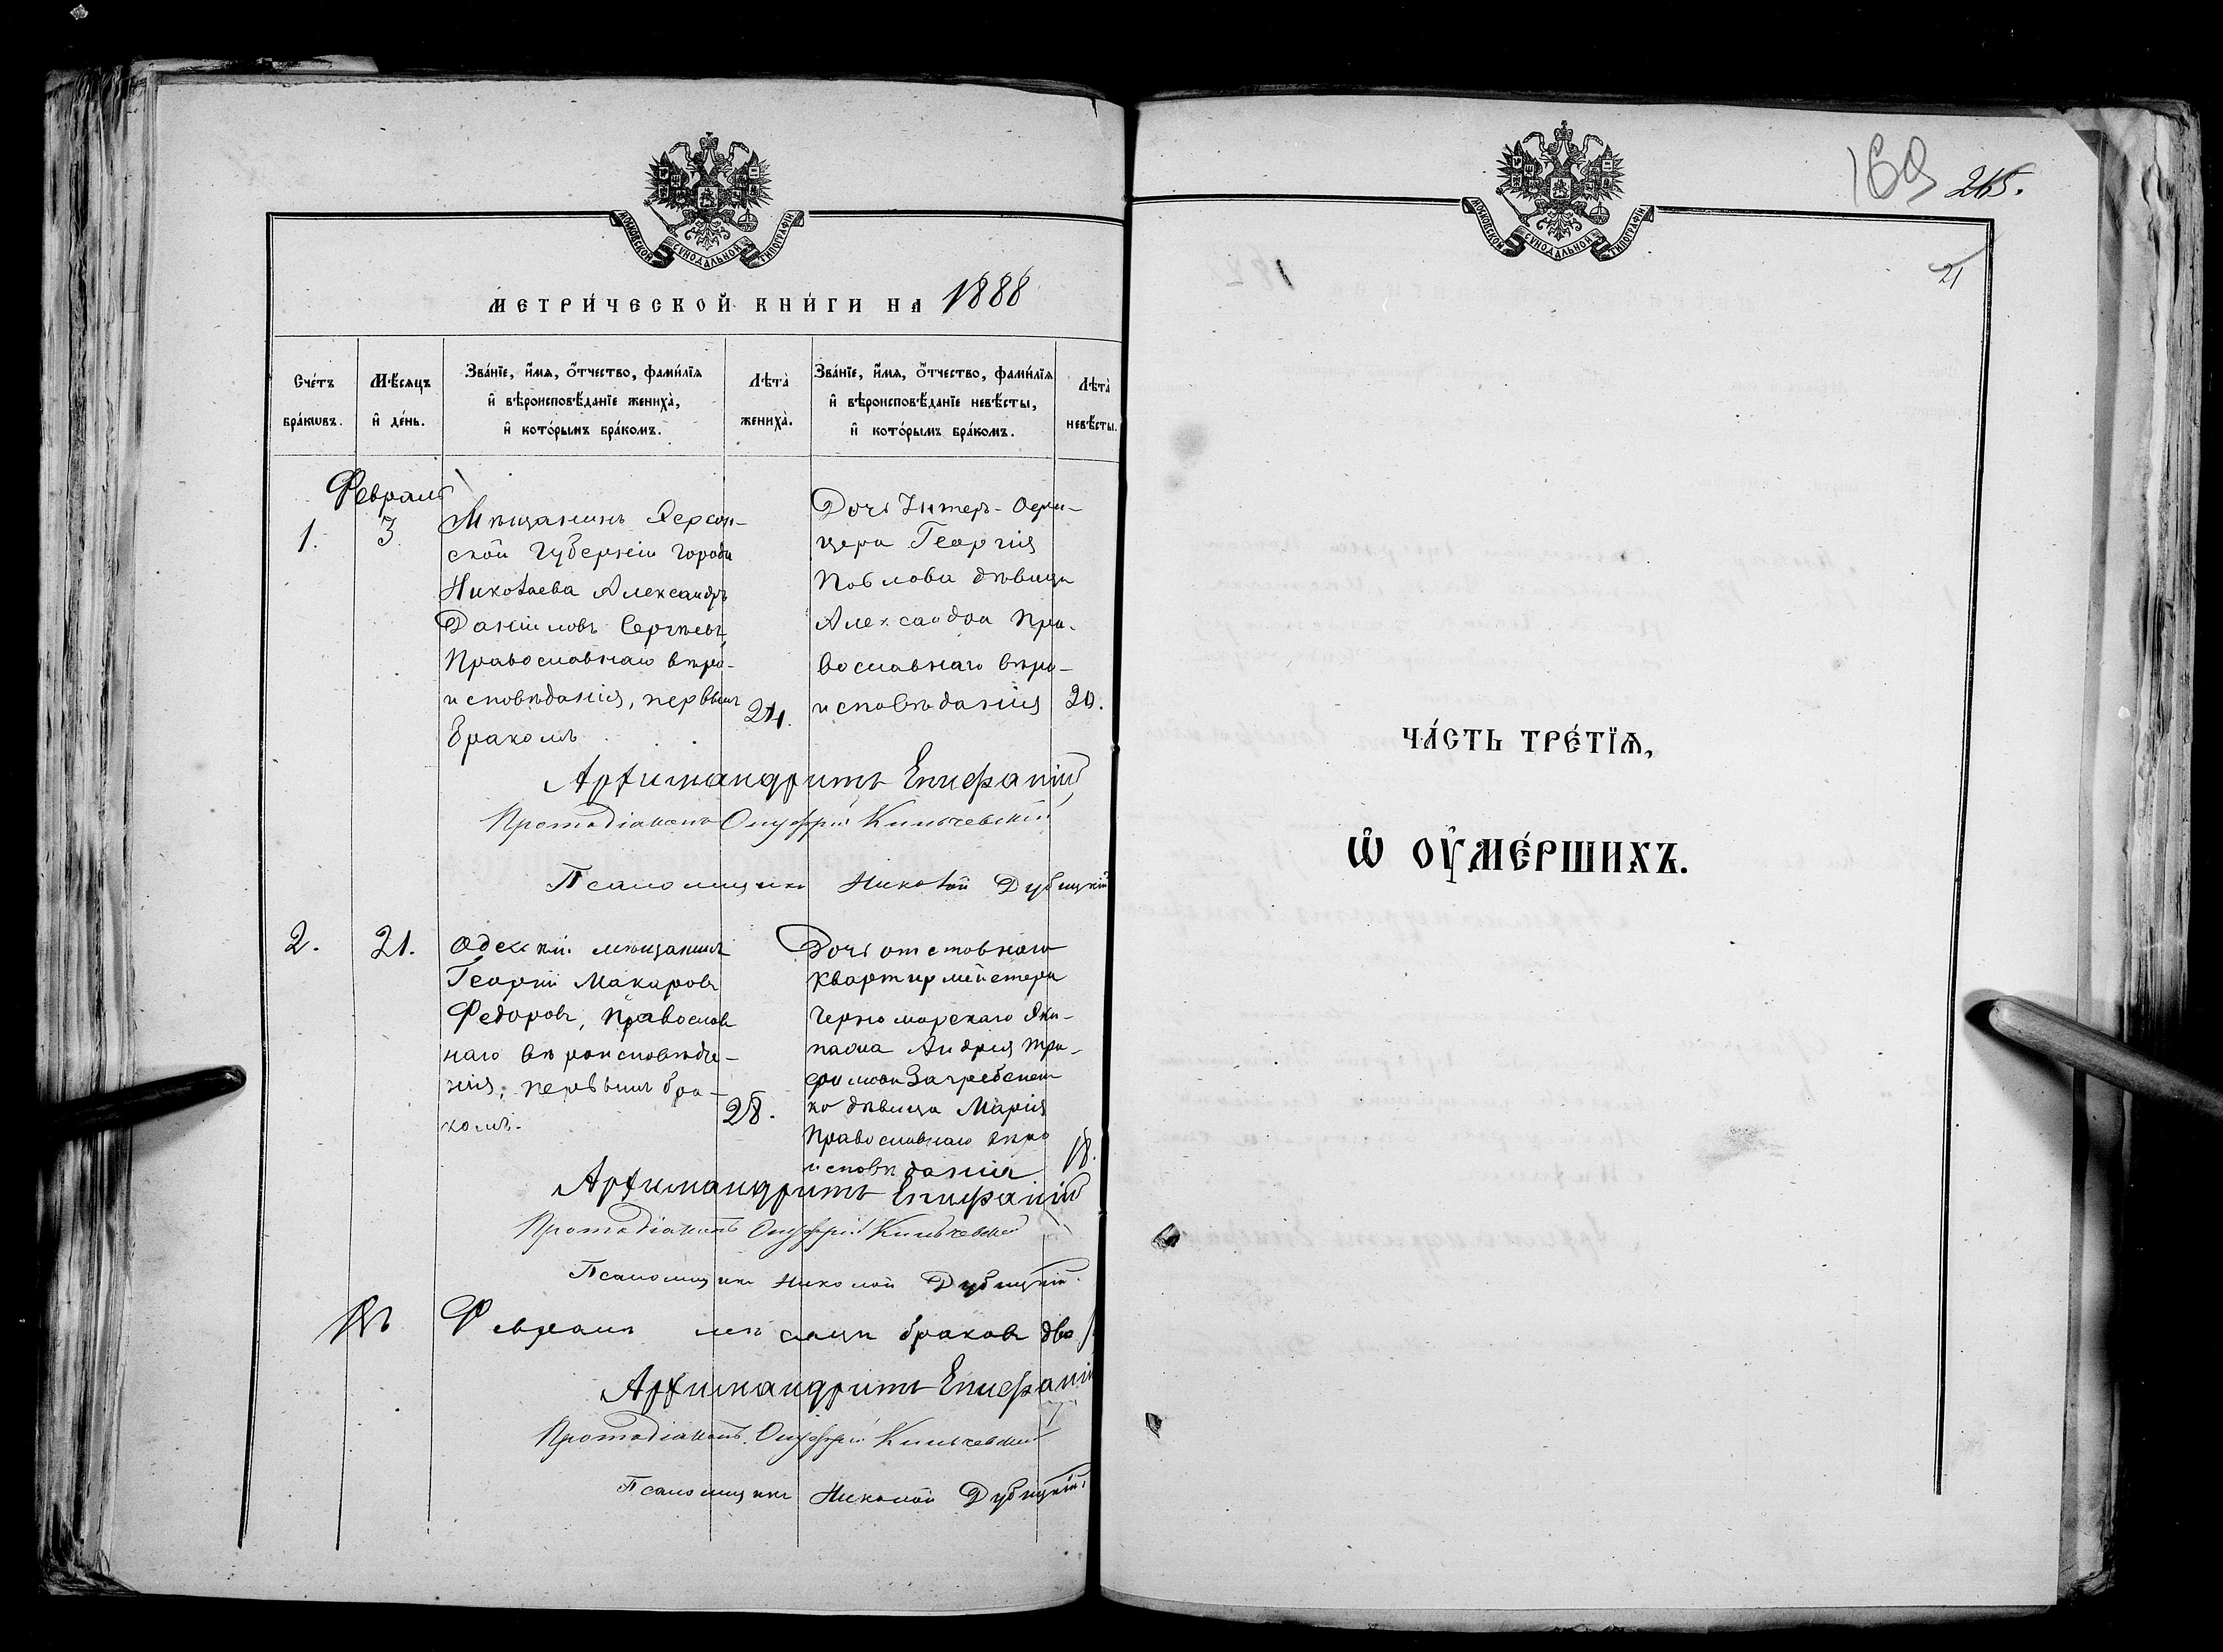 МОСКОВСКОЙ СѴНОДАЛЬНОЙ ТИПОГРАФІИ
МЕТРИ́ЧЕСКОЙ КНИ́ГИ НА 1888
Сче́тъ бра́кѡвъ.
Мѣ́сяцъ и҆ де́нь.
Зва́нїе, и҆́мѧ, ѻ҆́тчество, фами́лїѧ
и҆ вѣроисповѣ́данїе женихà,
и҆ кото́рымъ бра́комъ.
Лѣтà женихà.
Зва́нїе, и҆́мѧ, ѻ҆́тчество, фами́лїѧ
и҆ вѣроисповѣ́данїе невѣ́сты,
и҆ кото́рымъ бра́комъ.
Лѣтà невѣ́сты.
Февраль
1.
3
Мѣщанинъ Херсон-
ской Губерніи города
Николаева Александръ
Даніиловъ Сергѣевъ,
Православнаго вѣро-
исповѣданія, первымъ
бракомъ
24.
Дочь Унтеръ-Офи-
цера Георгія
Павлова дѣвица
Александра Пра-
вославнаго вѣро-
исповѣданія
20.
Архимандритъ Епифаній
Протодіаконъ Онуфрій Кильчевскій
Псаломщикъ Николай Дубицкій
2.
21.
Одесскій мѣщанинъ
Георгій Макаровъ
Федоровъ, Православ
наго вѣроисповѣда-
нія, первымъ бра-
комъ.
28.
Дочь отставнаго
квартирмейстера
Черноморскаго Эки-
пажа Андрея Тро-
фимова Загребенен
ко дѣвица Марія
Православнаго вѣро
исповѣданія
18.
Архимандритъ Епифаній
Протодіаконъ Онуфрій Кильчевскій
Псаломщикъ Николай Дубицкій.
Въ Февралѣ мѣсяцѣ браковъ два
Архимандритъ Епифаній
Протодіаконъ Онуфрій Кильчевскій
Псаломщикъ Николай Дубицкій
МОСКОВСКОЙ СѴНОДАЛЬНОЙ ТИПОГРАФІИ
169
265.
21
ЧА́СТЬ ТРЕ́ТЇѦ,
Ѡ҆ ОУ҆МЕ́РШИХЪ.